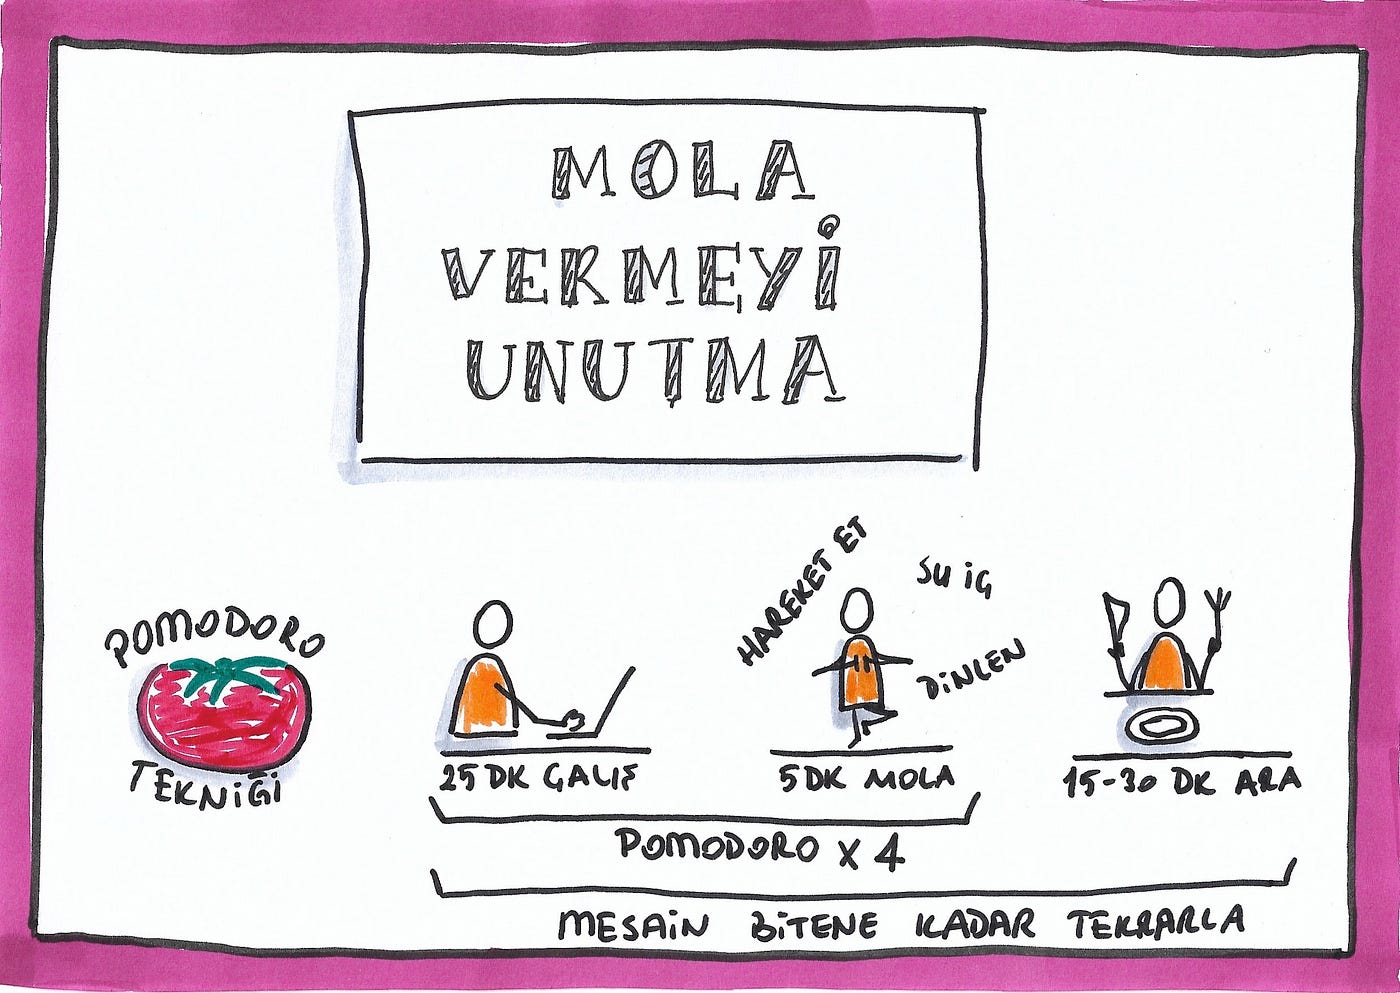 MOLA
VERMEYİ
UNUTMA
POMODORO
TEKNİĞİ
25 DK ÇALIŞ
HAREKET ET
SU İÇ
DİNLEN
5 DK MOLA
15-30 DK ARA
POMODORO X 4
MESAİN BİTENE KADAR TEKRARLA